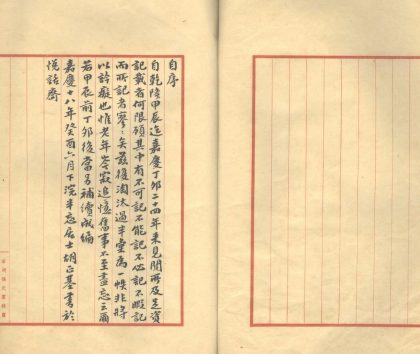 自序
自乾隆甲辰迄嘉慶丁卯二十四年來見聞所及足資
記載者何限顧其中有不可記不能記不必記不暇記
而所記者寥〻矣茲復淘汰過半棄為一帙非將
以誇癡也惟老年岑寂追憶舊事不至盡忘云爾
若甲辰前丁卯後當另補續成編
嘉慶十八年癸酉六月下浣半忘居士胡正基書於
悅話齋